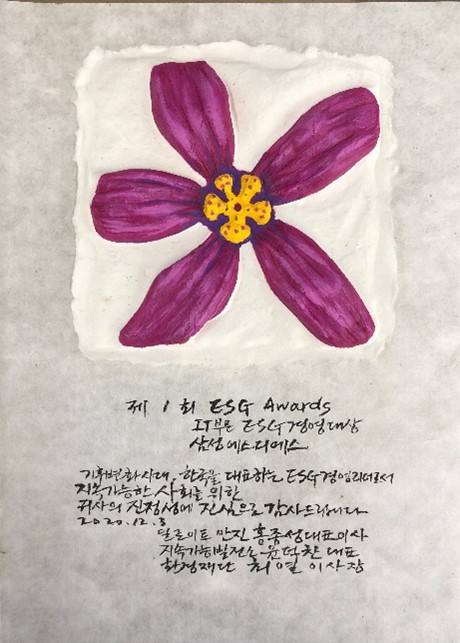 제 1 회 ESG Awards
IT부문 ESG경영대상
삼성에스디에스
기후변화시대, 한국을 대표하는 ESG경영리더로서
지속가능한 사회를 위한
귀사의 진정성에 진심으로 감사드립니다
2020.12.3
딜로이트 안진 홍종성대표이사
지속가능발전소 윤덕찬 대표
환경재단 최열 이사장